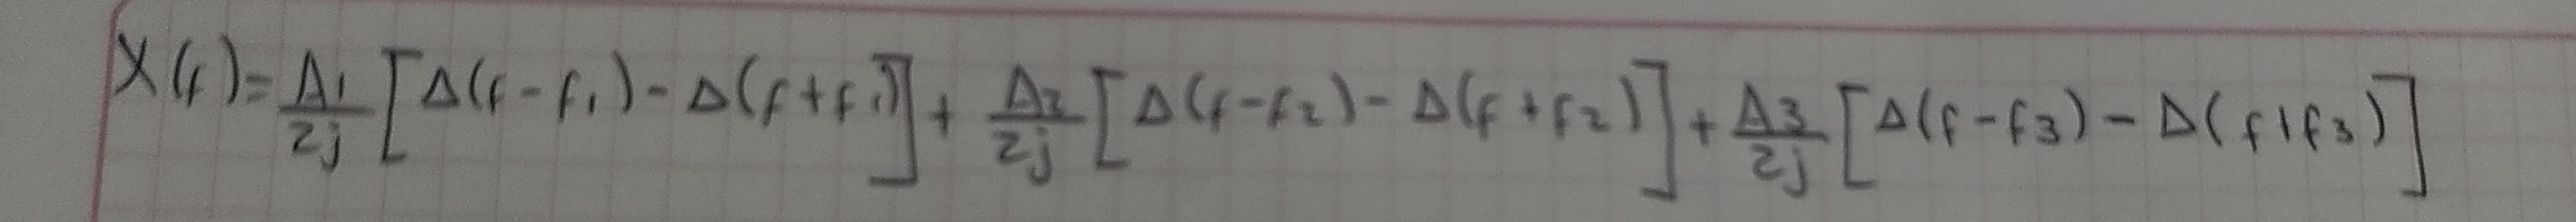 X(f)= A1/2j [Δ(f-f1)-Δ(f+f1)] + A2/2j [Δ(f-f2)-Δ(f+f2)] + A3/2j [Δ(f-f3)-Δ(f+f3)]